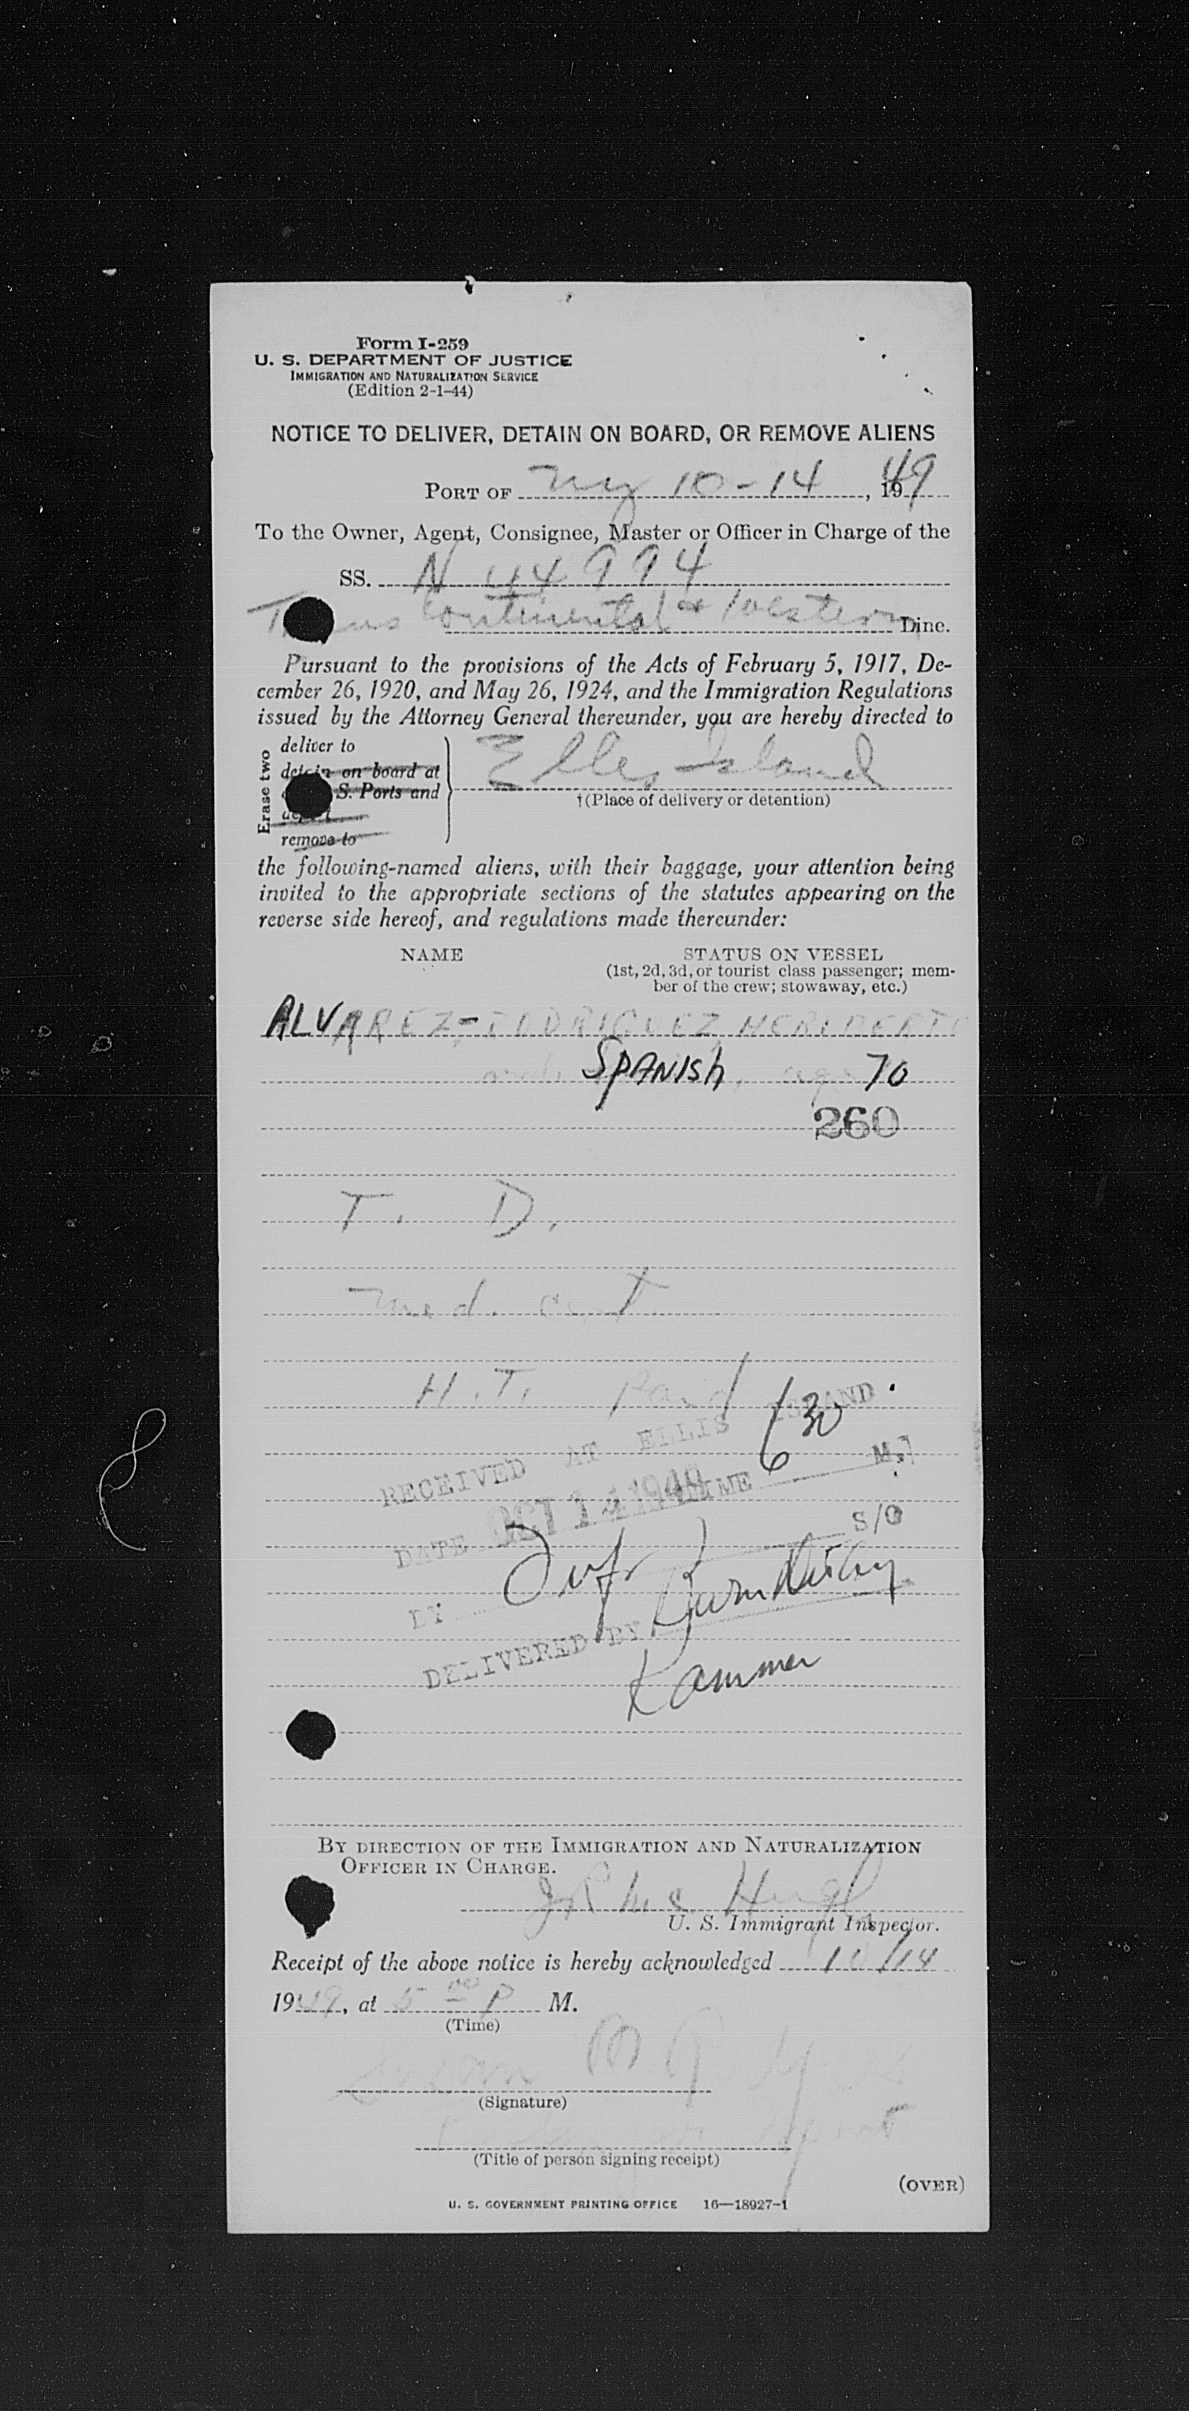 Form I-259
U. S. DEPARTMENT OF JUSTICE
IMMIGRATION AND NATURALIZATION SERVICE
(Edition 2-1-44)
NOTICE TO DELIVER, DETAIN ON BOARD, OR REMOVE ALIENS
PORT OF NY 10-14, 1949
To the Owner, Agent, Consignee, Master or Officer in Charge of the
SS. N 44994
Trans Continental & Western Line.
Pursuant to the provisions of the Acts of February 5, 1917, De-
cember 26, 1920, and May 26, 1924, and the Immigration Regulations
issued by the Attorney General thereunder, you are hereby directed to
Erase two
deliver to
detain on board at
S. Ports and
deport
remove to
Elles Island
†(Place of delivery or detention)
the following-named aliens, with their baggage, your attention being
invited to the appropriate sections of the statutes appearing on the
reverse side hereof, and regulations made thereunder:
NAME STATUS ON VESSEL
(1st, 2d, 3d, or tourist class passenger; mem-
ber of the crew; stowaway, etc.)
ALVAREZ-RODRIGUEZ HERIBERTO
SPANISH, age 70
260
T. D.
Med. cert.
H.T. Paid
RECEIVED AT ELLIS ISLAND
DATE OCT 14 1949 TIME 6 30 M.
BY S/O
DELIVERED BY
Kammer
BY DIRECTION OF THE IMMIGRATION AND NATURALIZATION
OFFICER IN CHARGE.
J R Mc Hugh
U. S. Immigrant Inspector.
Receipt of the above notice is hereby acknowledged 10/14
1949, at 5 00 P M.
(Time)
Susan M
(Signature)
Agent
(Title of person signing receipt)
(OVER)
U. S. GOVERNMENT PRINTING OFFICE 16—18927-1